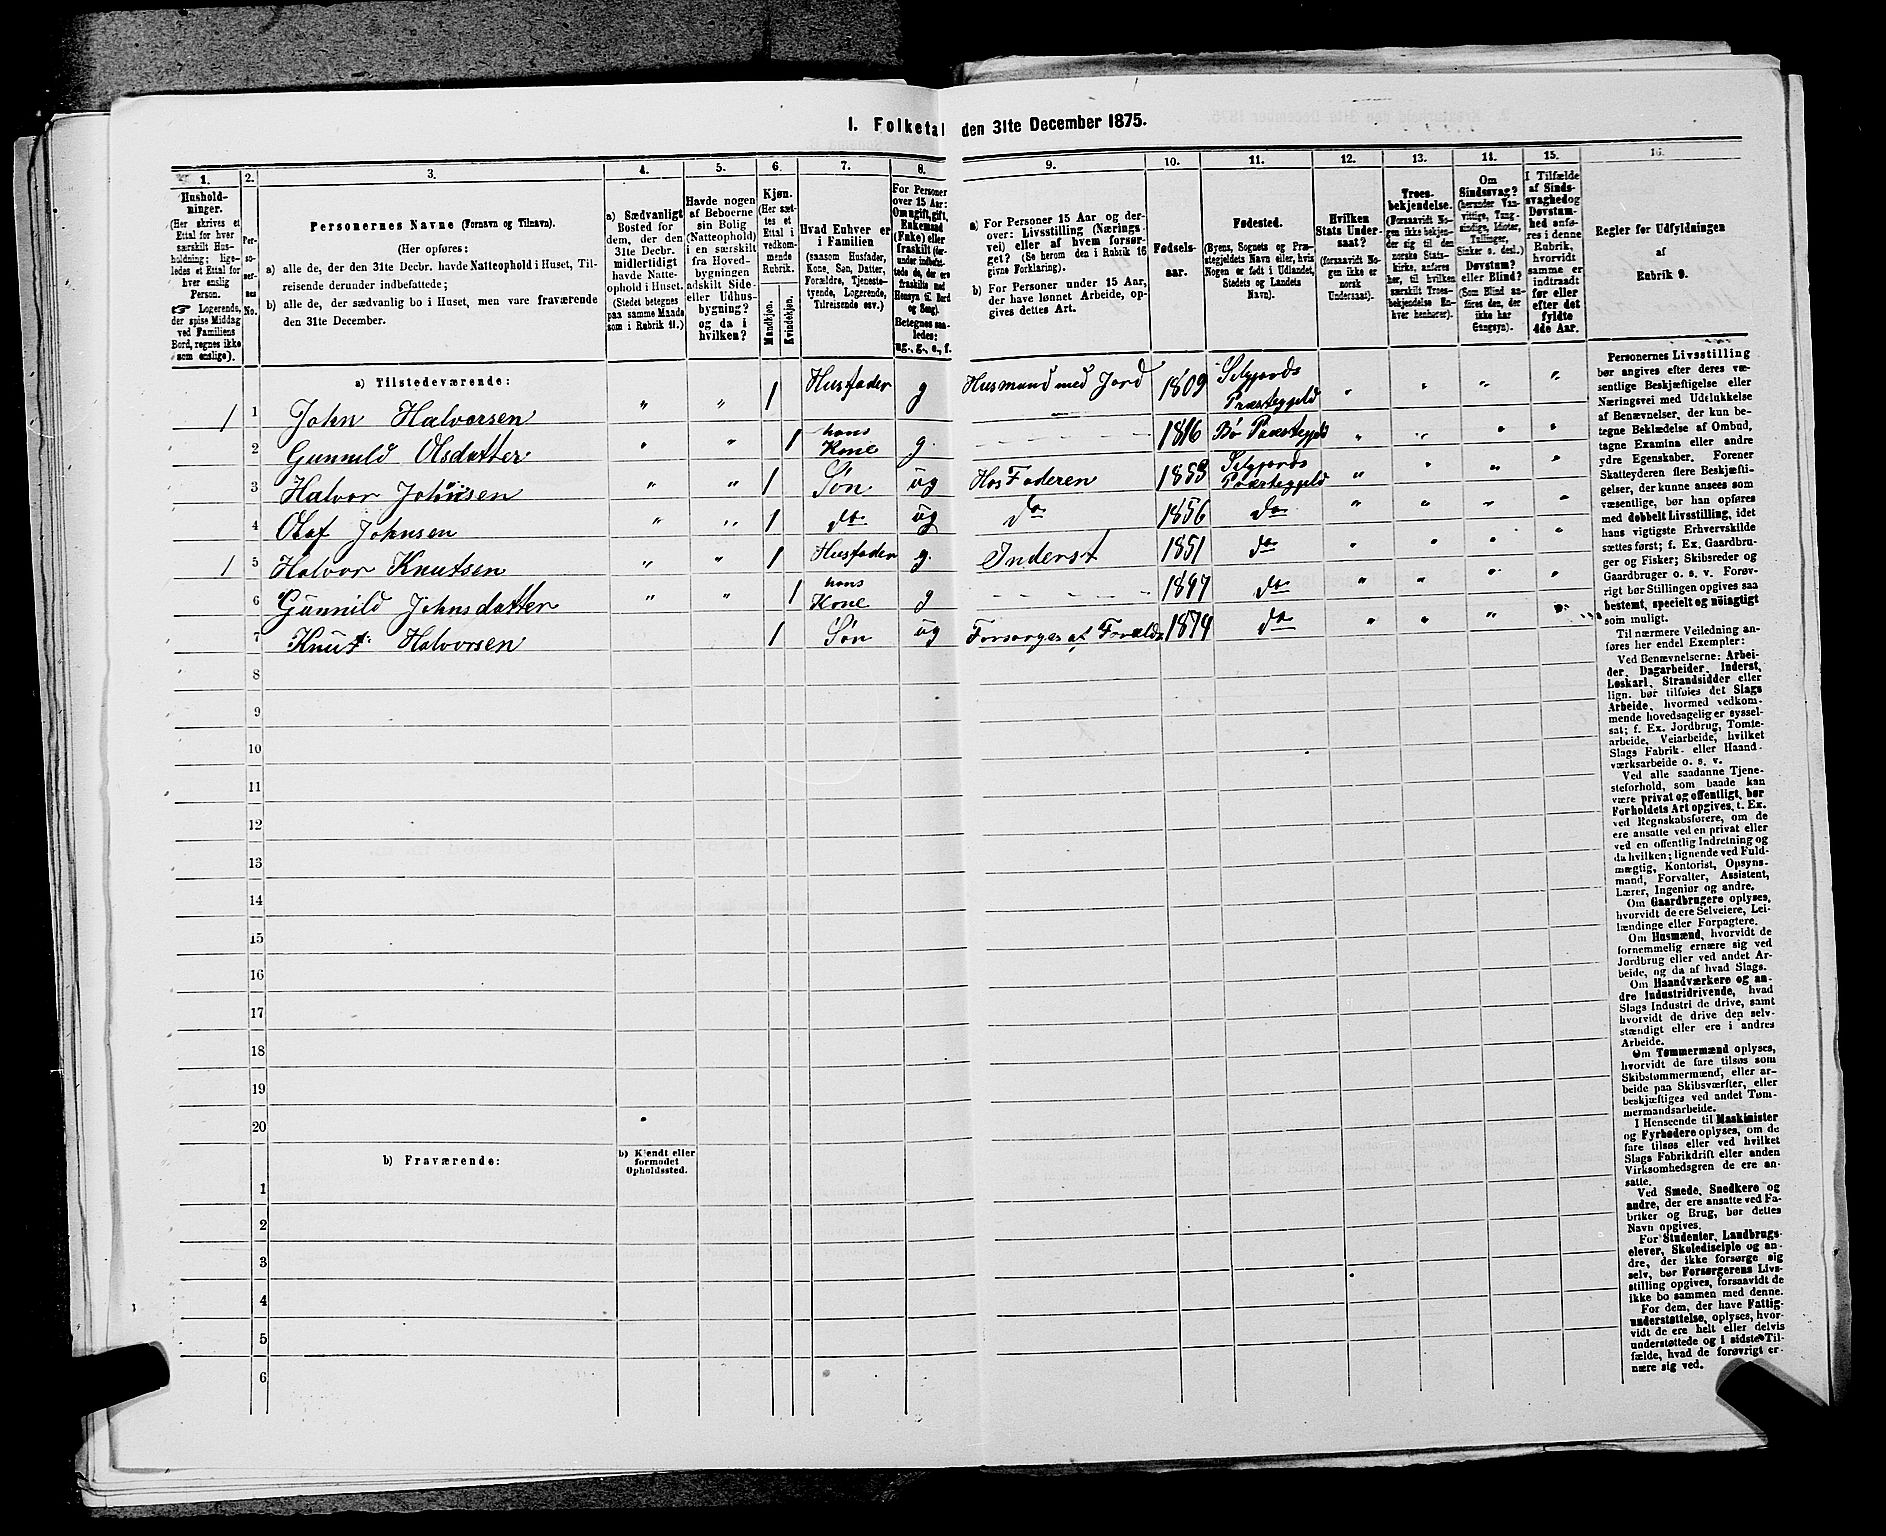 I. Folketal den 31te December 1875.
1. 2. 3. 4. 5. 6. 7. 8. 9. 10. 11. 12. 13. 14. 15. 16.
Hushold-
ninger.
(Her skrives et
Ettal for hver
særskilt Hus-
holdning; lige-
ledes et Ettal for
hver enslig
Person.
☞ Logerende,
der spise Middag
ved Familiens
Bord, regnes ikke
som enslige).
Per-
so-
ner-
nes
No.
Personernes Navne (Fornavn og Tilnavn).
(Her opføres:
a) alle de, der den 31te Decbr. havde Natteophold i Huset, Til-
reisende derunder indbefattede;
b) alle de, der sædvanlig bo i Huset, men vare fraværende
den 31te December.
a) Sædvanligt
Bosted for
dem, der den
31te Decbr.
midlertidigt
havde Natte-
ophold i Huset.
(Stedet betegnes
paa samme Maade
som i Rubrik 11.)
Havde nogen
af Beboerne
sin Bolig
(Natteophold)
i en særskilt
fra Hoved-
bygningen
adskilt Side-
eller Udhus-
bygning?
og da i
hvilken?
Kjøn.
(Her sæt-
tes et
Ettal i
vedkom-
mende
Rubrik.
Mandkjøn.
Kvindekjøn.
Hvad Enhver er
i Familien
(saasom Husfader,
Kone, Søn, Datter,
Forældre, Tjeneste-
tyende, Logerende,
Tilreisende osv.)
For Personer
over 15 Aar:
Om ugift, gift,
Enkemand
(Enke) eller
fraskilt (der-
under indbefat-
tede de, der ere
fraskilte med
Hensyn til Bord
og Seng).
Betegnes saa-
ledes:
ug., g., e., f.
a) For Personer 15 Aar og der-
over: Livsstilling (Nærings-
vei) eller af hvem forsør-
get? (Se herom den i Rubrik 16
givne Forklaring).
b) For Personer under 15 Aar,
der have lønnet Arbeide, op-
gives dettes Art.
Fødsels-
aar.
Fødested.
(Byens, Sognets og Præ-
stegjeldets Navn eller, hvis
Nogen er født i Udlandet,
Stedets og Landets
Navn).
Hvilken
Stats Under-
saat?
(forsaavidt No-
gen ikke er
norsk
Undersaat).
Troes-
bekjendelse.
(Forsaavidt No-
gen ikke bekjen-
der sig til den
norske Stats-
kirke, anføres
her, til hvilken
særskilt Troes-
bekjendelse En-
hver henhører).
Om
Sindssvag?
(herunder Van-
vittige, Tung-
sindige, Idioter,
Tullinger,
Sinker o. desl.).
Døvstum?
eller Blind?
(Som Blind an-
føres den, der
ikke har
Gangsyn).
I Tilfælde
af Sinds-
svaghed og
Døvstum-
hed anfø-
res i denne
Rubrik,
hvorvidt
samme er
indtraadt
før eller
efter det
fyldte
4de Aar.
Regler for Udfyldningen
af
Rubrik 9.
a) Tilstedeværende:
1 1 John Halvorsen " " 1 Husfader g Husmand med Jord 1809 Seljords Præstegjeld " " " "
2 Gunnild Olsdatter " " 1 hans Kone g. - - - - - 1816 Bø Præstegjd " " " "
3 Halvor Johnsen " " 1 Søn ug Hos Faderen 1853 Seljords Præstegjeld " " " "
4 Olaf Johnsen " " 1 do ug do 1856 do " " " "
1 5 Halvor Knutsen " " 1 Husfader g. Inderst 1851 do " " " "
6 Gunnild Johnsdatter " " 1 hans Kone g - - - - - 1847 do " " " "
7 Knut Halvorsen 1 Søn ug Forsørges af Foræld. 1874 do " " " "
8
9
10
11
12
13
14
15
16
17
18
19
20
b) Fraværende:
b) Kjendt eller
formodet
Opholdssted.
1
2
3
4
5
6
Personernes Livsstilling
bør angives efter deres væ-
sentlige Beskjæftigelse eller
Næringsvei med Udelukkelse
af Benævnelser, der kun be-
tegne Beklædelse af Ombud,
tagne Examina eller andre
ydre Egenskaber. Forener
Skatteyderen flere Beskjæfti-
gelser, der kunne ansees som
væsentlige, bør han opføres
med dobbelt Livsstilling, idet
hans vigtigste Erhvervskilde
sættes først; f. Ex. Gaardbru-
ger og Fisker; Skibsreder og
Gaardbruger o. s. v. Forøv-
rigt bør Stillingen opgives saa
bestemt, specielt og nøiagtigt
som muligt.
Til nærmere Veiledning an-
føres her endel Exempler:
Ved Benævnelserne: Arbei-
der, Dagarbeider, Inderst,
Løskarl, Strandsidder eller
lign. bør tilføies det Slags
Arbeide, hvormed vedkom-
mende hovedsagelig er syssel-
sat; f. Ex. Jordbrug, Tomte-
arbeide, Veiarbeide, hvilket
Slags Fabrik- eller Haand-
værksarbeide o. s. v.
Ved alle saadanne Tjene-
steforhold, som baade kan
være privat og offentligt, bør
Forholdets Art opgives, t. Ex.
ved Regnskabsførere, om de
ere ansatte ved en privat eller
ved en offentlig Indretning og
da hvilken; lignende ved Fuld-
mægtig, Kontorist, Opsyns-
mand, Forvalter, Assistent,
Lærer, Ingeniør og andre.
Om Gaardbrugere oplyses,
hvorvidt de ere Selveiere, Lei-
lændinge eller Forpagtere.
Om Husmænd, hvorvidt de
fornemmelig ernære sig ved
Jordbrug eller ved andet Ar-
beide, og da af hvad Slags.
Om Haandværkere og an-
dre Industridrivende, hvad
Slags Industri de drive, samt
hvorvidt de drive den selv-
stændigt eller ere i andres
Arbeide.
Om Tømmermænd oplyses,
hvorvidt de fare tilsøs som
Skibstømmermænd, eller ar-
beide paa Skibsværfter, eller
beskjæftiges ved andet Tøm-
mermandsarbeide.
I Henseende til Maskinister
og Fyrbødere oplyses, om de
fare tilsøs eller ved hvilket
Slags Fabrikdrift eller anden
Virksomhedsgren de ere an-
satte.
Ved Smede, Snedkere og
andre, der ere ansatte ved Fa-
briker og Brug, bør dettes
Navn opgives.
For Studenter, Landbrugs-
elever, Skoledisciple og an-
dre, der ikke forsørge sig
selv, bør Forsørgerens Livs-
stilling opgives, forsaavidt de
ikke bo sammen med denne.
For dem, der have Fattig-
understøttelse, oplyses, hvor-
vidt de ere helt eller delvis
understøttede og i sidste Til-
fælde, hvad de forøvrigt er-
nære sig ved.